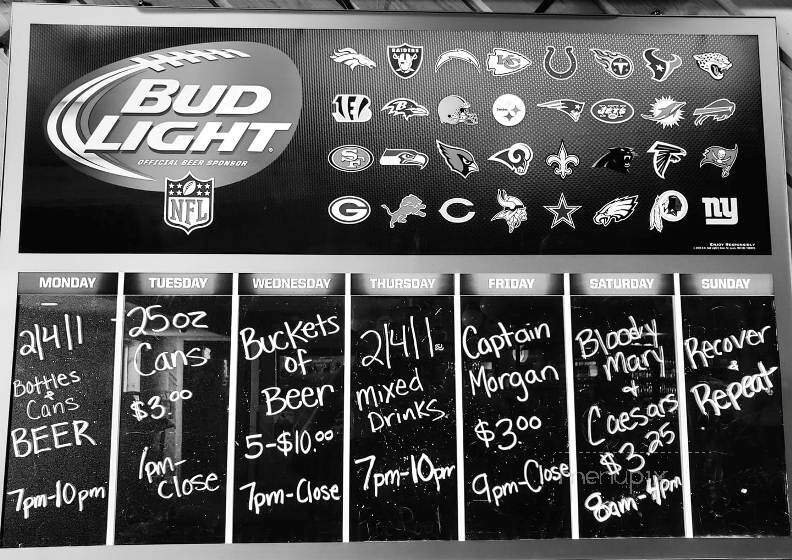 BUD
LIGHT
OFFICIAL BEER SPONSOR
NFL
RAIDERS
KC
JETS
SF
G
C
ny
ENJOY RESPONSIBLY
MONDAY
2/4/1
Bottles
&
Cans
BEER
7pm-10pm
TUESDAY
25oz
Cans
$3.00
1pm-
close
WEDNESDAY
Buckets
of
Beer
5-$10.00
7pm-Close
THURSDAY
2/4/1
mixed
Drinks
7pm-10pm
FRIDAY
Captain
Morgan
$3.00
9pm-Close
SATURDAY
Bloody
Mary
+
Caesars
$3.25
8am-4pm
SUNDAY
Recover
&
Repeat
menupix